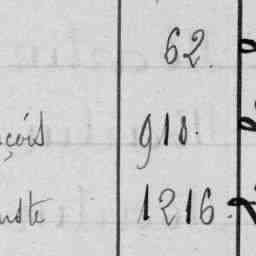 62.
çois 910.
uste 1216.